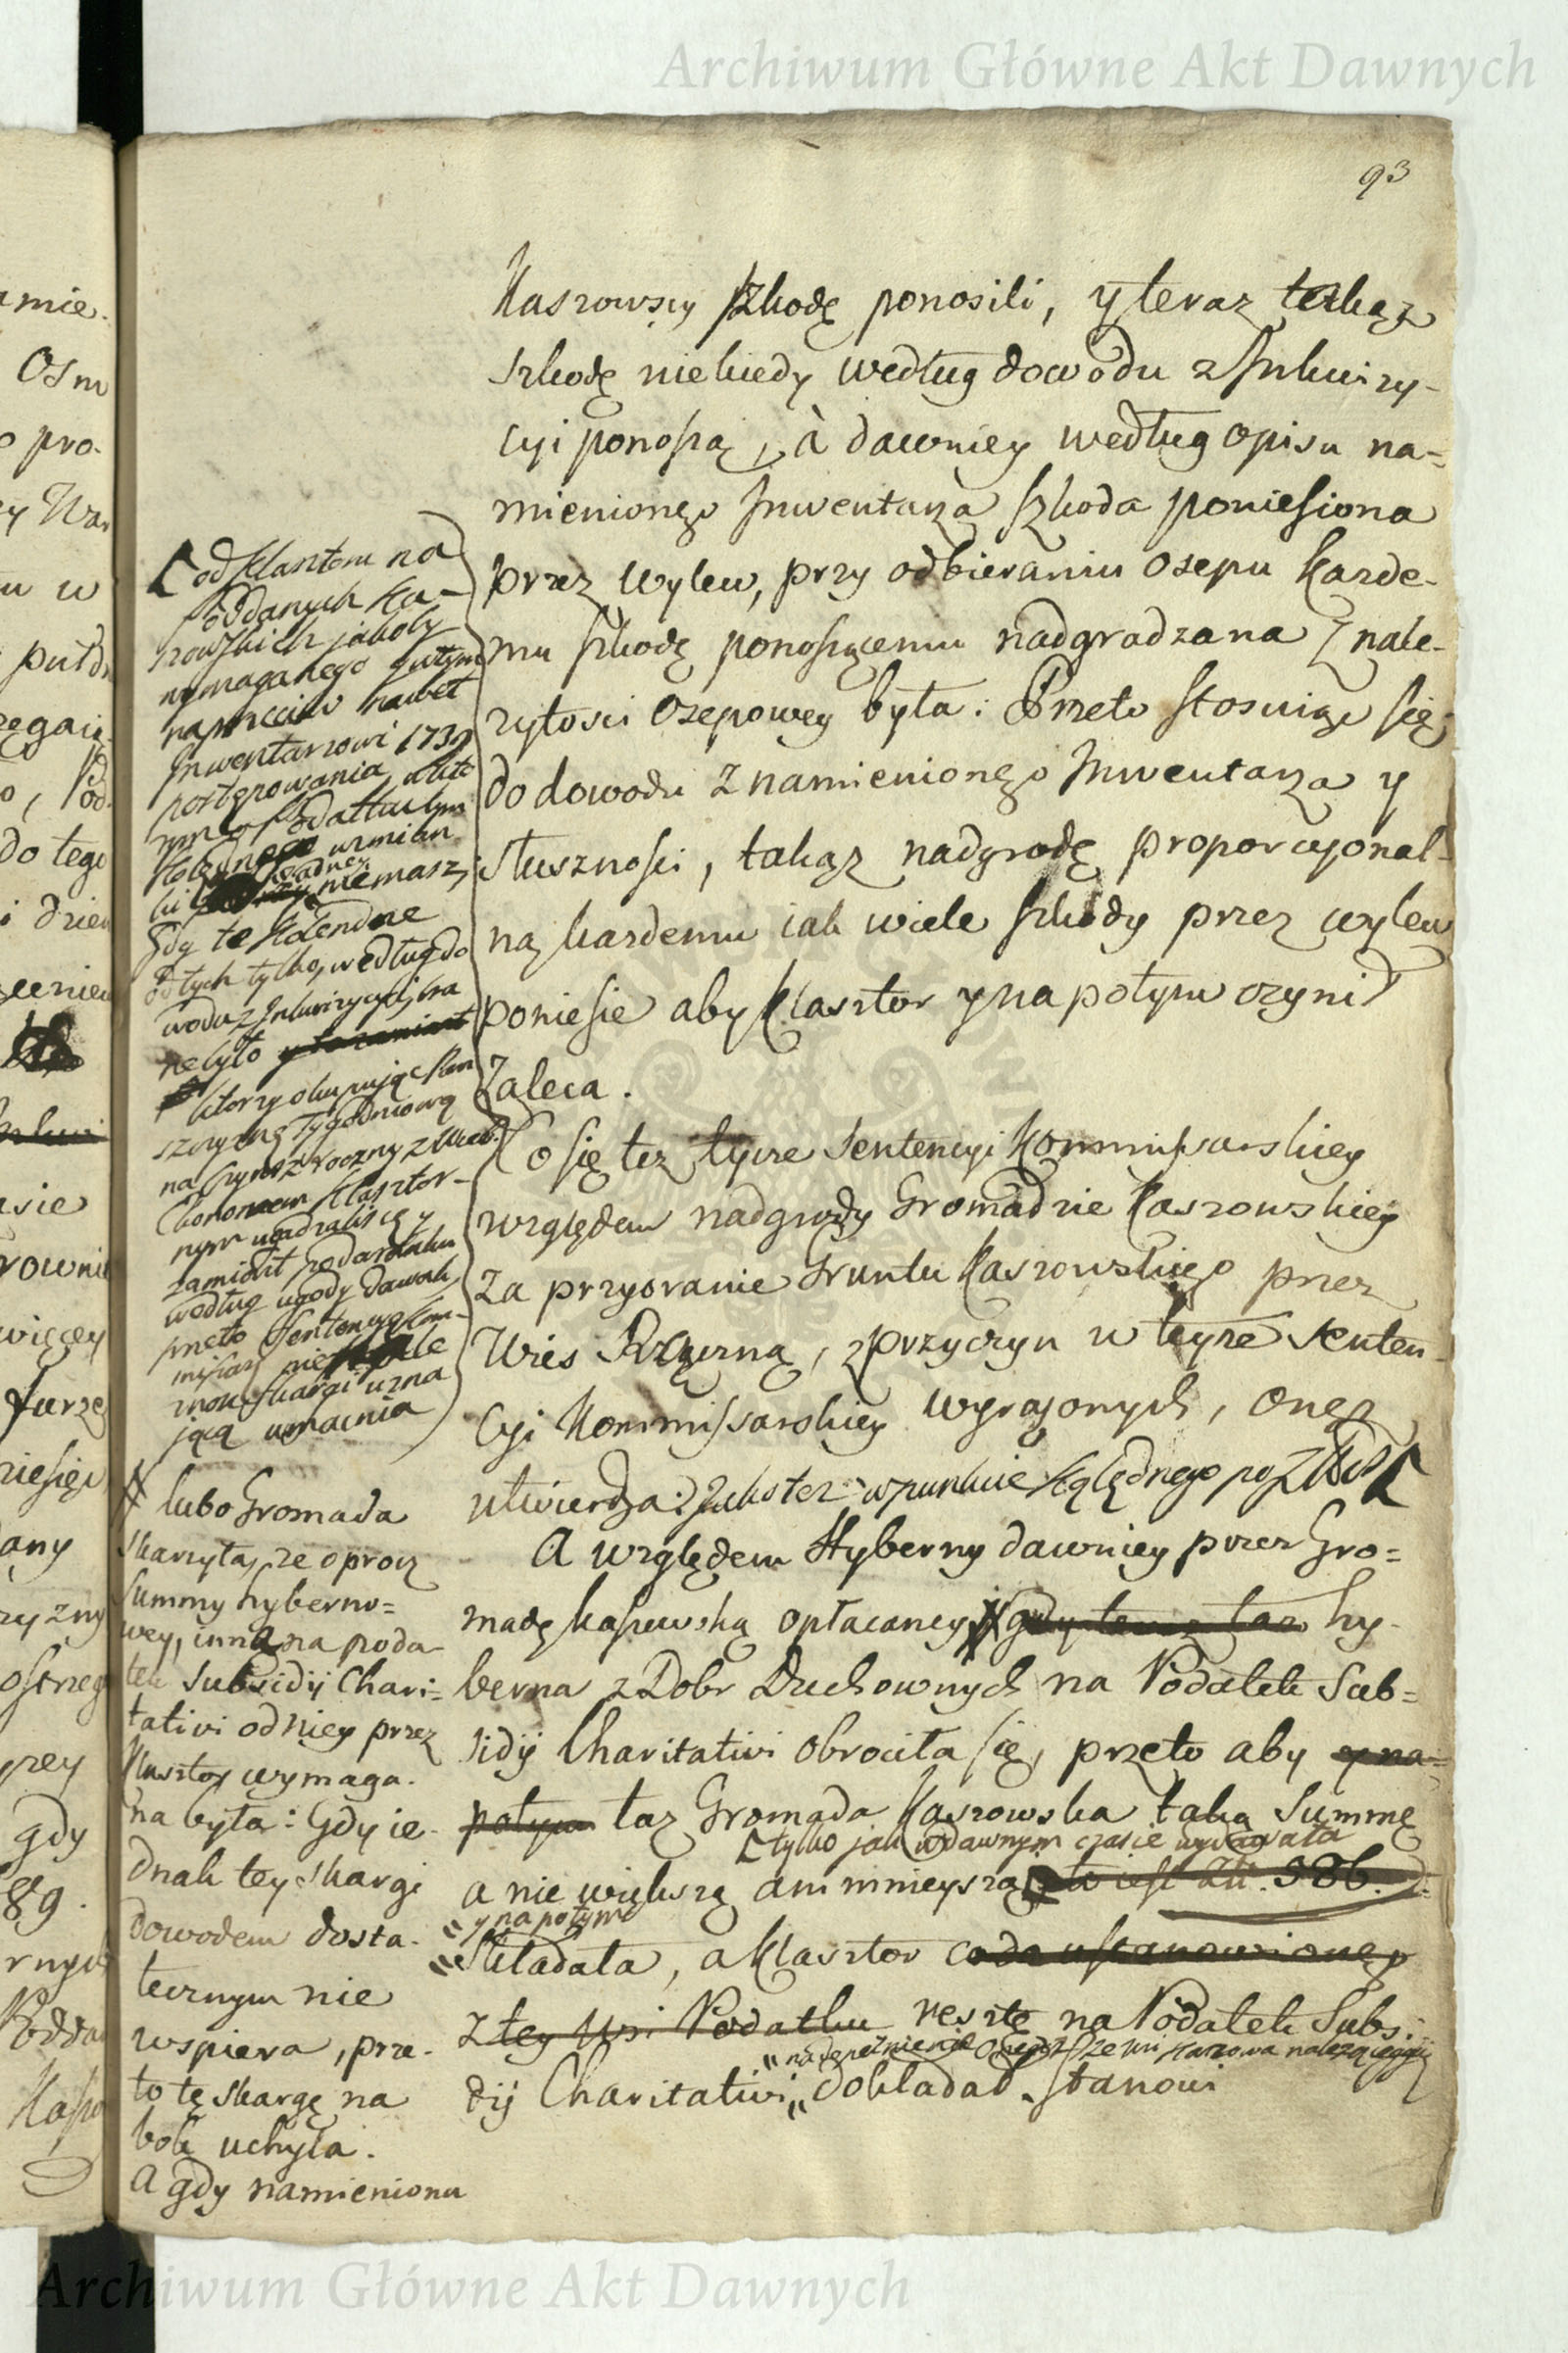 Archiwum Główne Akt Dawnych
93
Kaszowscy szkodę ponosili, y teraz takąż
szkodę niekiedy według dowodu z Inkwizy-
cyi ponoszą, à dawniey według opisu na=
mienionego Inwentarza szkoda poniesiona
przez wylew, przy odbieraniu Osepu każde-
mu szkodę ponoszącemu nadgradzana z nale-
żytości Osepowey była: Przeto stosuiąc się
do dowodu z namienionego Inwentarza y
słuszności, takąż nadgrodę proporcyonal-
ną każdemu iak wiele szkody przez wylew
poniesie aby Klasztor y na potym czynił
Zaleca.
Co się też tycze Sentencyi Kommissarskiey
względem nadgrody Gromadzie Kaszowskiey
za przyoranie Gruntu Kaszowskiego przez
Wieś Rączną, z przyczyn w teyże Senten-
cyi Kommissarskiey wyrażonych, onęż
utwierdza: Jakoteż w punkcie kolędnego po
A względem Hyberny dawniey przez Gro=
madę Kaszewską opłacaney # gdy teraz taż hy-
berna z Dobr Duchownych na Podatek Sub=
sidij Charitativi obrociła się, przeto aby y na=
potym taż Gromada Kaszowska taką Summę
tylko jak w dawnym czasie wydawała
a nie większą ani mnieyszą to iest Zł. 386.
y na potym
składała, a Klasztor co do ustanowionego
z tey Wsi Podatku resztę na Podatek Subsi-
na dopełnienie onegoż ze wsi Kaszowa należącego
dij Charitativi dokładał stanowi
od Klasztoru na
Poddanych Ka-
szowskich jakoby
wymaganego y w tym
naprzeciw nawet
Inwentarzowi 1739
postępowania, w kto
rym o Podatku tym
Kolędnego wzmian
ki żadney niemasz,
Gdy te Kolendne
od tych tylko, według do
wodu z Inkwizycyi, bra
ne było y to zamiast
ktorzy okupując Pan
szczyznę tygodniową
na Czynsz roczny z Kon
wentem Klasztor-
nym ugadzali się y
zamiast podarunku
według ugody dawali,
przeto Sentencyą Kom-
missarską nie
znow skargi uzna
jącą umacnia
# lubo Gromada
skarżyła, że oprocz
Summy hyberno=
wey, inna na poda-
tek Subsidij Chari=
tativi od niey przez
Klasztor wymaga-
na była: Gdy ie-
dnak tey skargi
dowodem dosta-
tecznym nie
wspiera, prze-
to tę skargę na
bok uchyla.
A gdy namieniona
Archiwum Główne Akt Dawnych